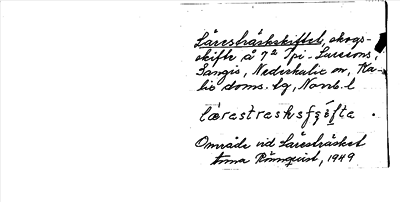 Låresträskskiftet, skogs-
skifte å 7⁠ᵃ Spi- Larsons,
Sangis, Nederkalix sn, Ka-
lix doms. lg, Norrb. l
lærastrasksfɟefta .
Område vid Låresträsket
Anna Rönnqvist, 1949